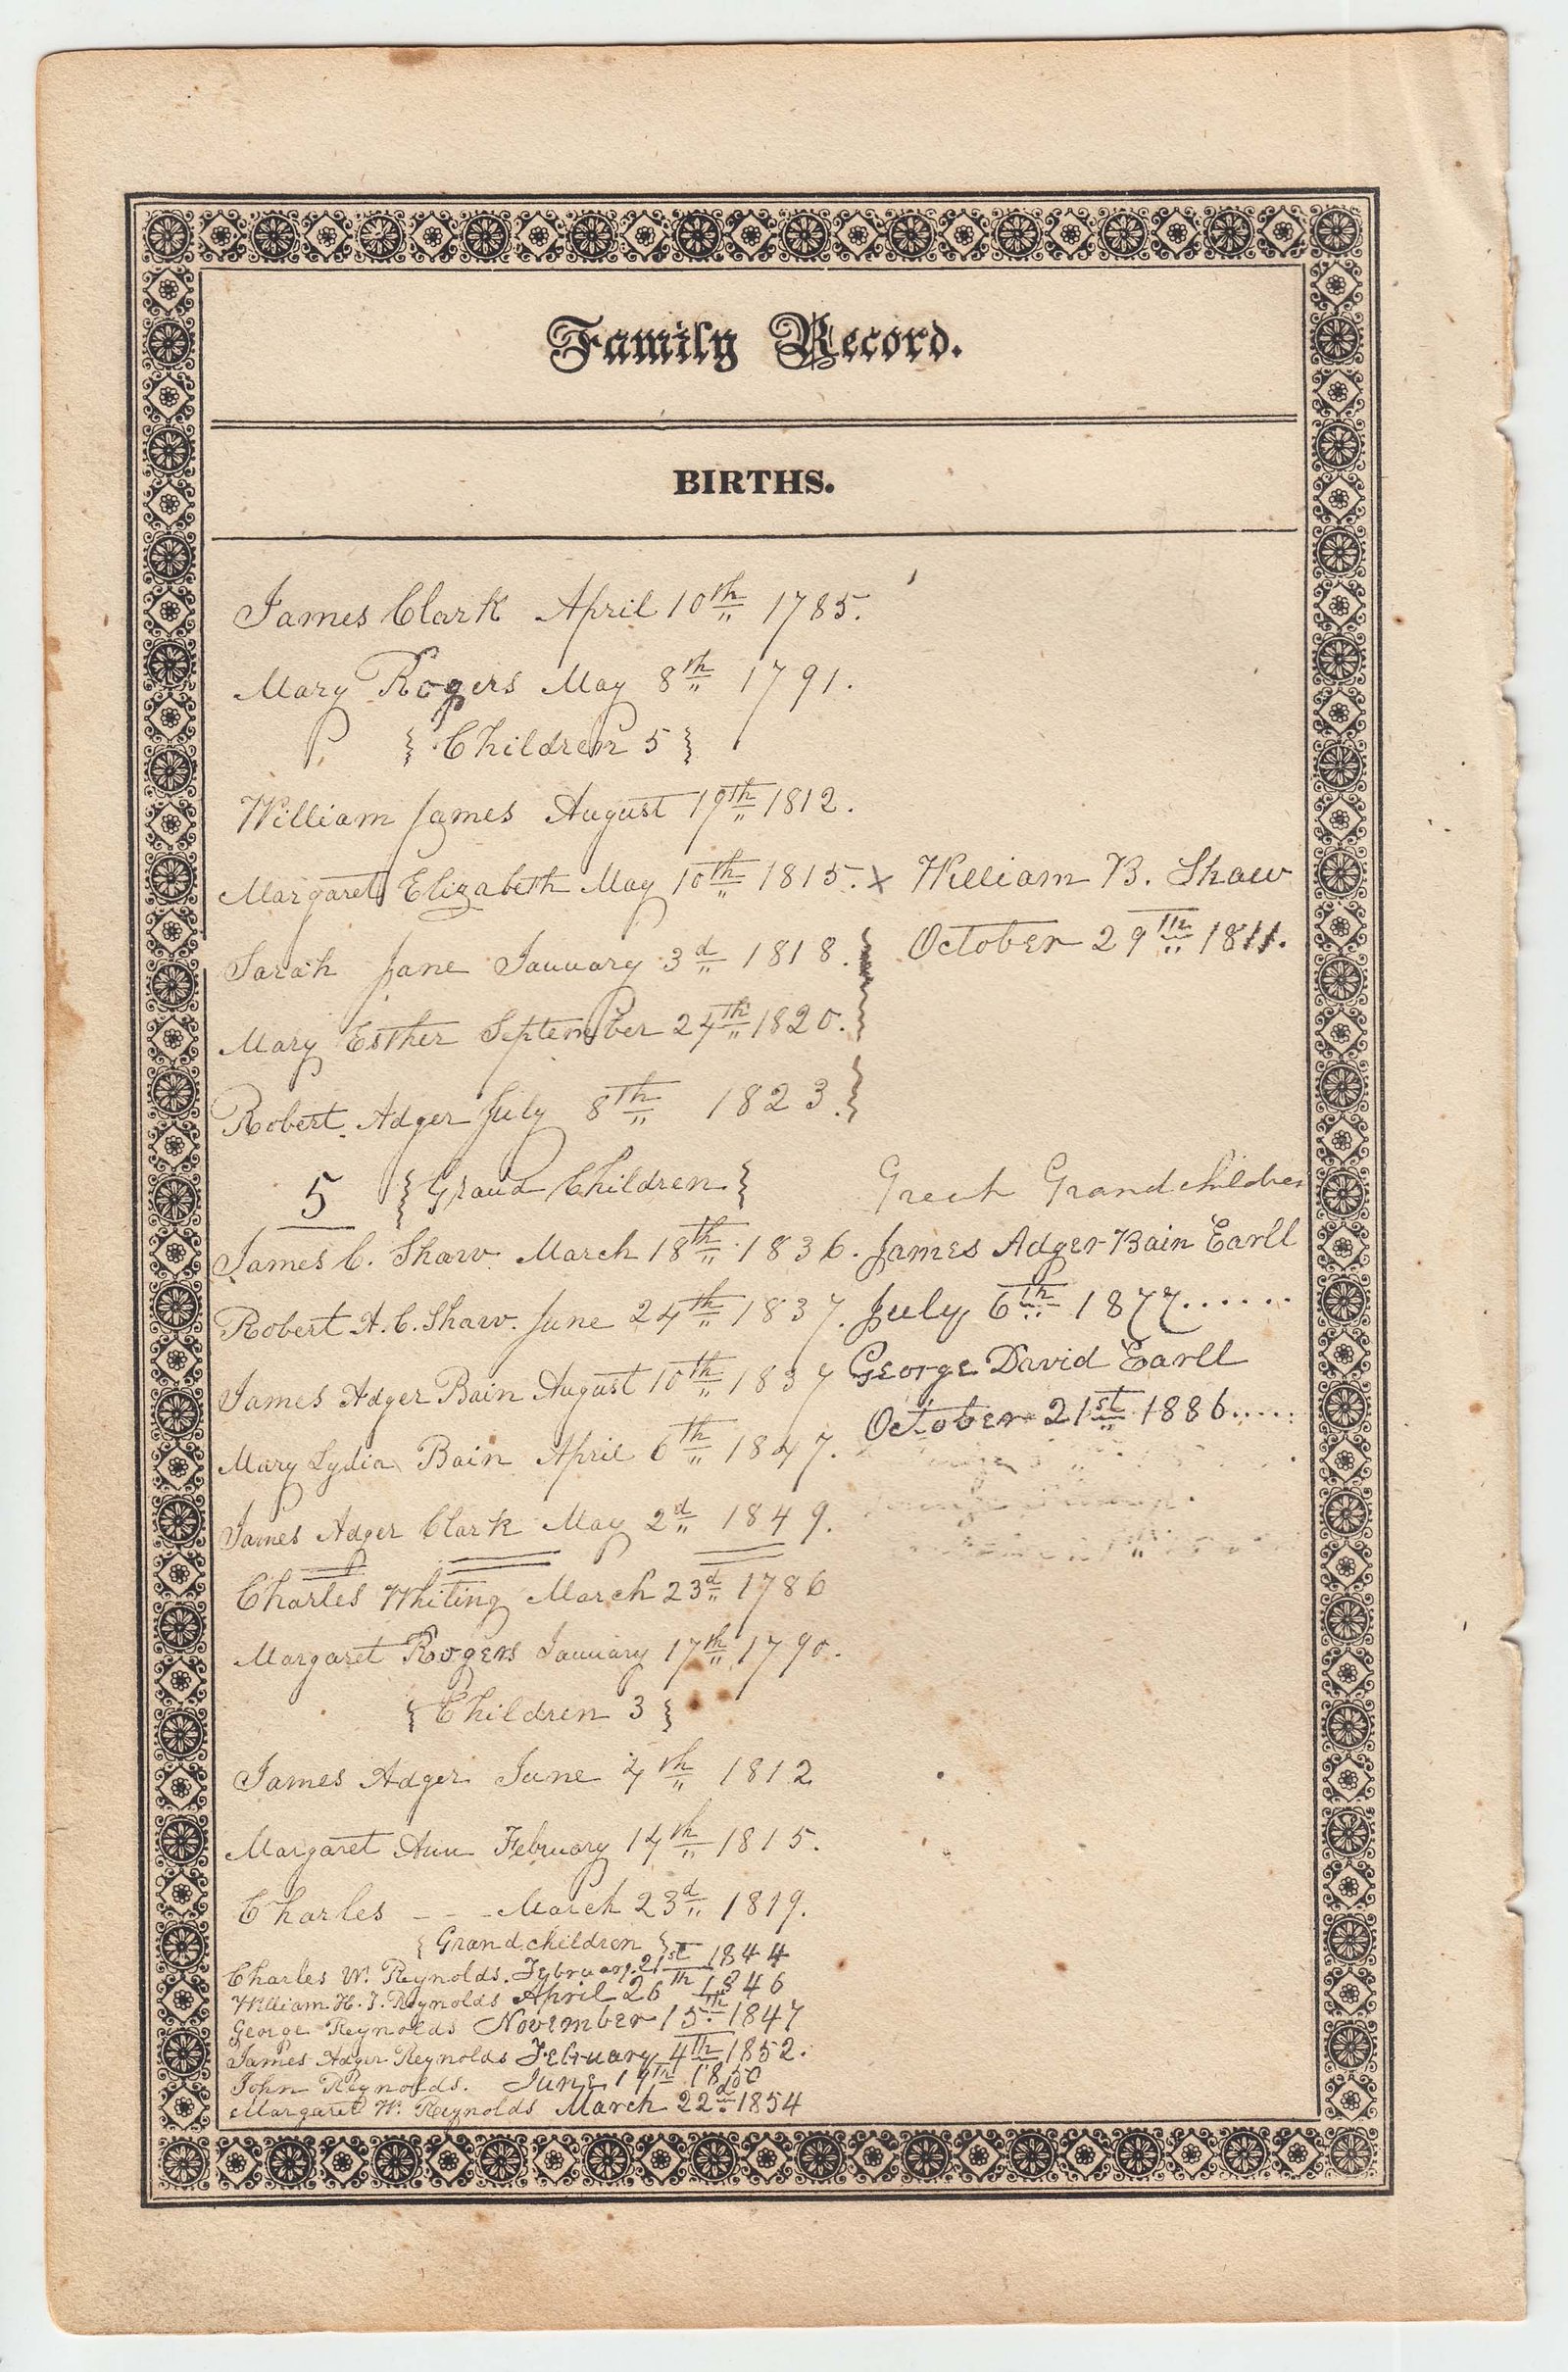 Family Record.
BIRTHS.
James Clark April 10th 1785.
Mary Rogers May 8th 1791.
{ Children 5 }
William James August 19th 1812.
Margaret Elizabeth May 10th 1815. x William B. Shaw
Sarah Jane January 3d 1818. } October 29th 1811.
Mary Esther September 24th 1820. }
Robert Adger July 8th 1823. }
5 { Grand Children } Great Grandchildren
James C. Shaw March 18th 1836. James Adger Bain Earll
Robert A. C. Shaw. June 24th 1837. July 6th 1877......
James Adger Bain August 10th 1837 George David Earll
Mary Lydia Bain April 6th 1847. October 21st 1886.....
James Adger Clark May 2d 1849.
Charles Whiting March 23d 1786
Margaret Rogers January 17th 1790.
{ Children 3 }
James Adger June 4th 1812
Margaret Ann February 14th 1815.
Charles - - - March 23d 1819.
{ Grandchildren }
Charles W. Reynolds. February 21st 1844
William H. J. Reynolds April 26th 1846
George Reynolds November 15th 1847
James Adger Reynolds February 4th 1852.
John Reynolds. June 19th 1850
Margaret W. Reynolds March 22d 1854